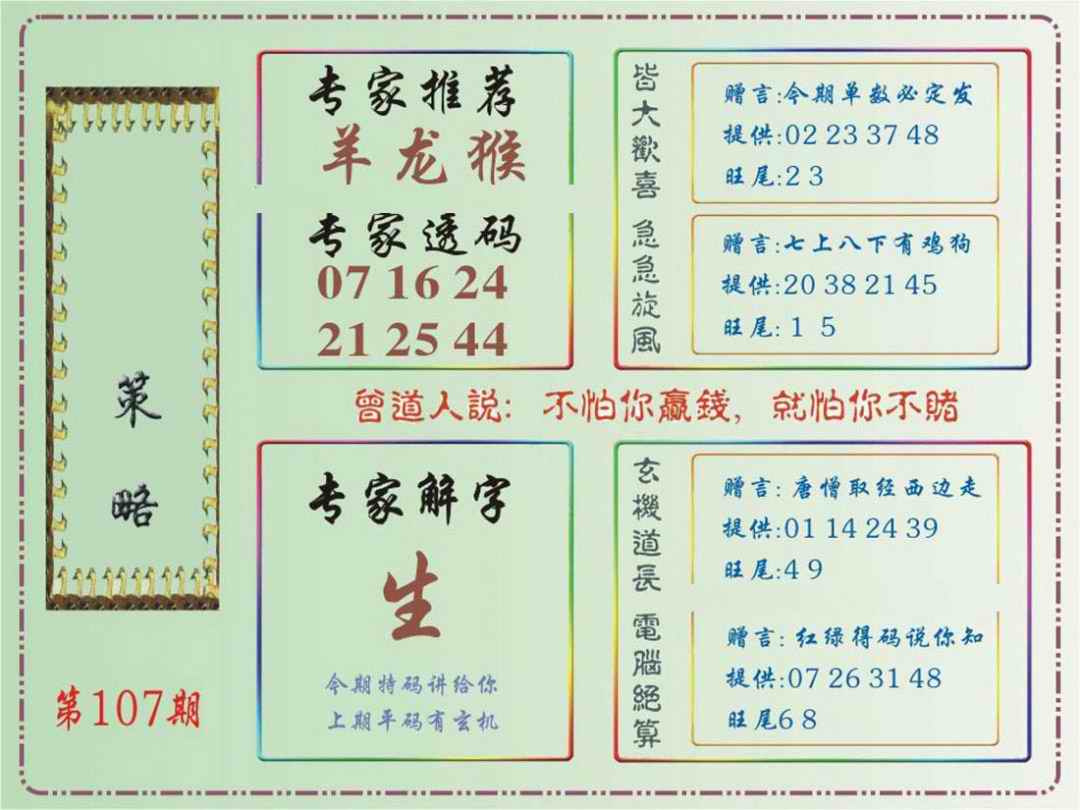 策略
第107期
专家推荐
羊龙猴
专家透码
07 16 24
21 25 44
皆大歡喜
赠言:今期单数必定发
提供:02 23 37 48
旺尾:2 3
急急旋風
赠言:七上八下有鸡狗
提供:20 38 21 45
旺尾: 1 5
曾道人説: 不怕你贏錢, 就怕你不賭
专家解字
生
今期特码讲给你
上期平码有玄机
玄機道長
赠言: 唐憎取经西边走
提供:01 14 24 39
旺尾:4 9
電腦絕算
赠言: 红绿得码说你知
提供:07 26 31 48
旺尾6 8